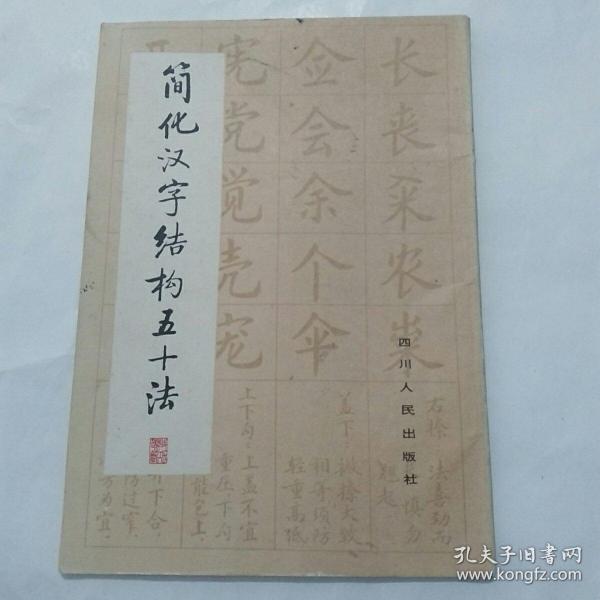 简化汉字结构五十法
四川人民出版社
长丧采农
佥会余个伞
宪党觉壳宠
右捺 法喜劲而
慎勿
翘起
盖下：撇捺大致
相齐须防
轻重高低
上下勾：上盖不宜
重压，下勾
能包上，
下合，
防过窄，
方为宜，
孔夫子旧书网
www.kongfz.com